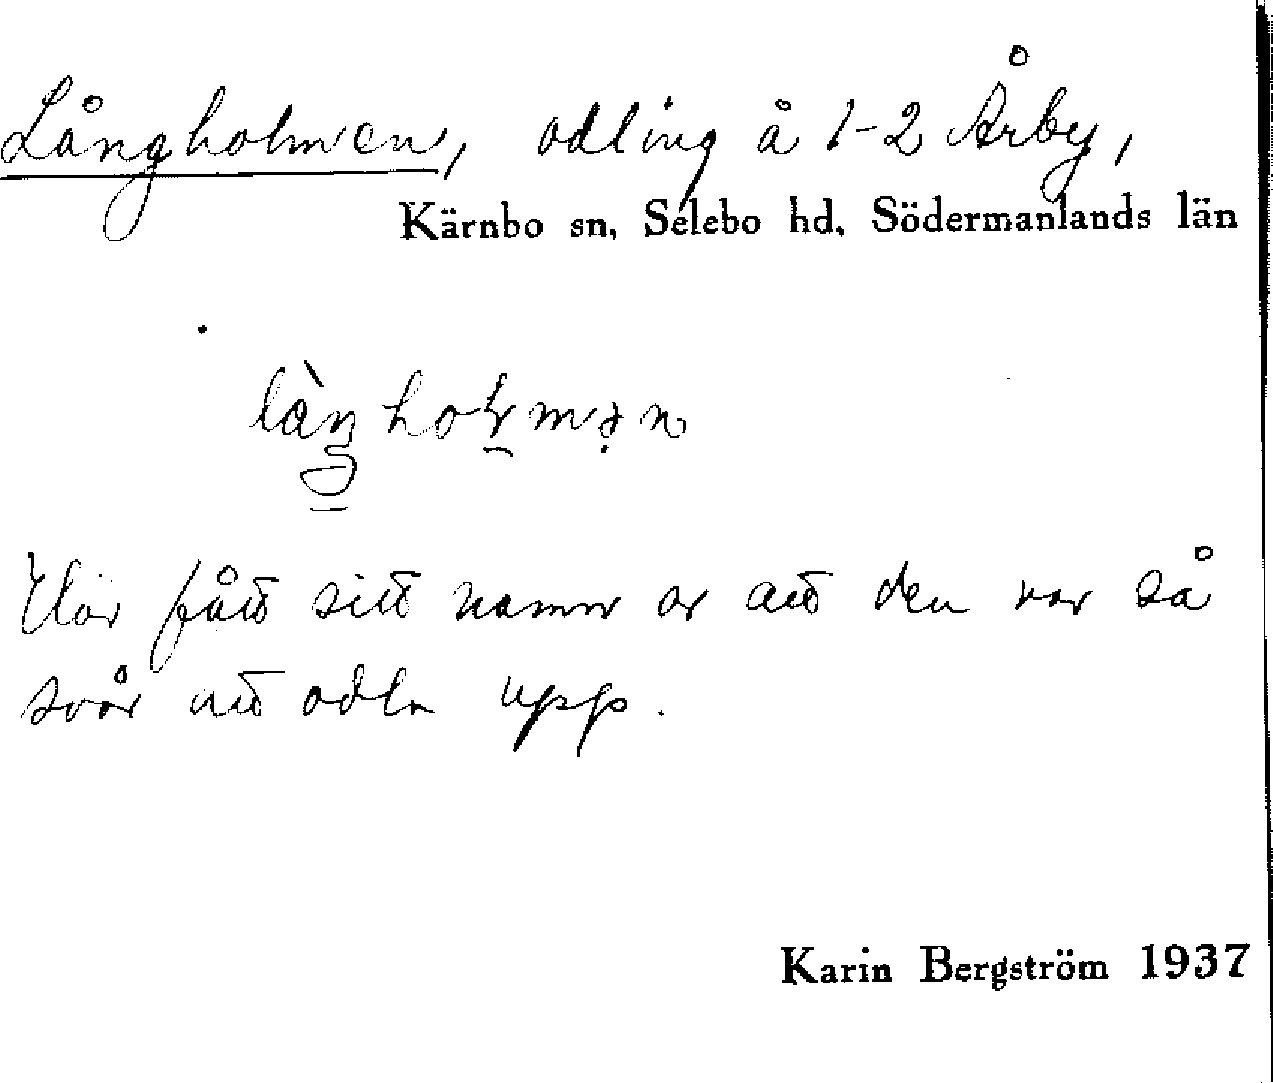 Långholmen, odling å 1-2 Årby,
Kärnbo sn, Selebo hd, Södermanlands län
Har fått sitt namn av att den var så
svår att odla upp.
Karin Bergström 1937